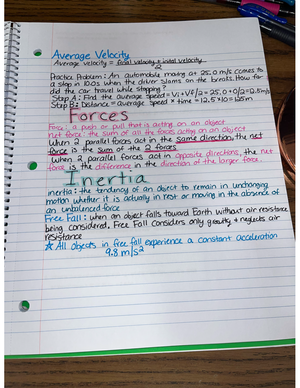 Average Velocity
Average velocity = final velocity + initial velocity
Practice Problem: An automobile moving at 25.0 m/s comes to
a stop in 10.0s when the driver slams on the breaks. How far
did the car travel while stopping?
Step A: Find the average speed = Vi + Vf/2 = 25.0 + 0/2 = 12.5m/s
Step B: Distance = average speed x time = 12.5 x 10 = 125m
Forces
Force: a push or pull that is acting on an object
net force: the sum of all the forces acting on an object
When 2 parallel forces act in the same direction, the net
force is the sum of the 2 forces.
When 2 parallel forces act in opposite directions, the net
force is the difference in the direction of the larger force.
Inertia
inertia: the tendency of an object to remain in unchanging
motion whether it is actually in rest or moving in the absence of
an unbalanced force
Free Fall: when an object falls toward Earth without air resistance
being considered, Free Fall considers only gravity & neglects air
resistance
★ All objects in free fall experience a constant acceleration
9.8 m/s²